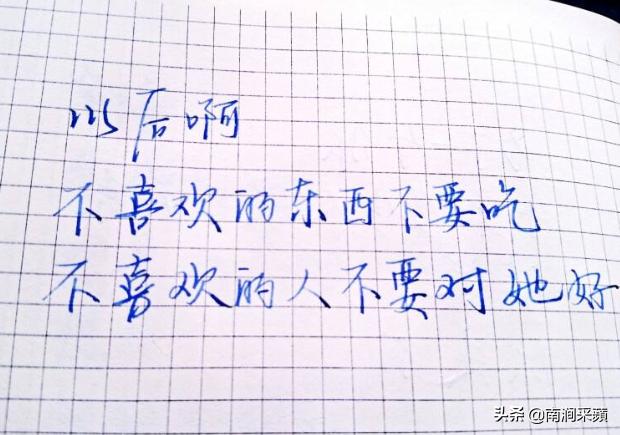 以后啊
不喜欢的东西不要吃
不喜欢的人不要对她好
头条 @南涧采蘋